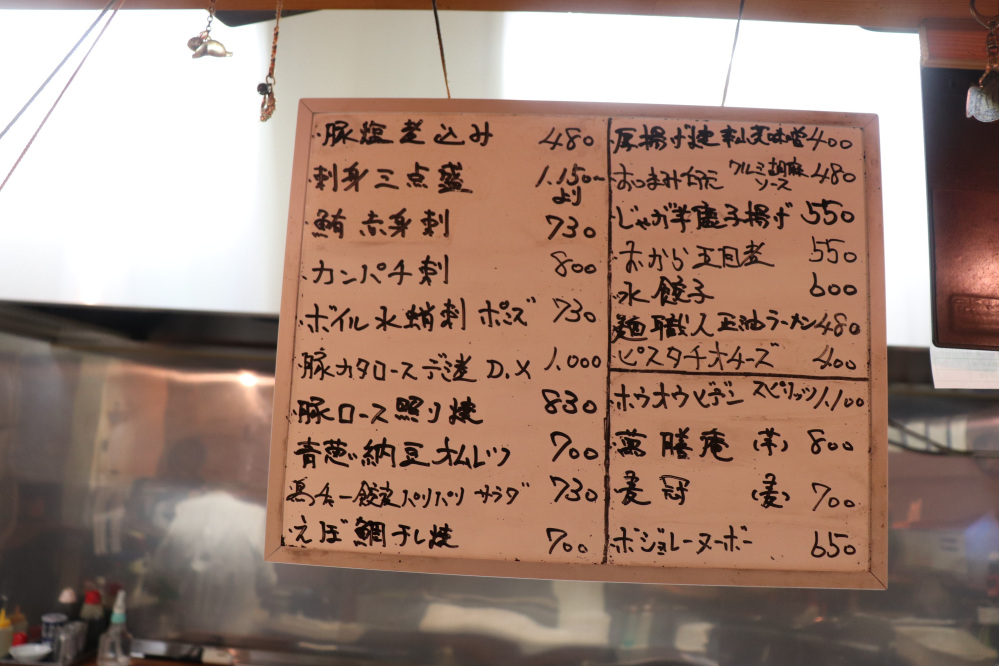 ・豚塩煮込み 480
・刺身三点盛 1.150〜より
・鮪赤身刺 730
・カンパチ刺 800
・ボイル水蛸刺 ポン酢 730
・豚カタロース D.X 1.000
・豚ロース照り焼 830
・青葱納豆オムレツ 700
餃子皮パリパリサラダ 730
・えぼ鯛干し焼 700
・厚揚げ 味噌 400
・おつまみ クルミ胡麻ソース 480
・じゃが芋唐子揚げ 550
・おから 煮 550
・水餃子 600
・麺職人 ラーメン 480
・ピスタチオチーズ 400
・ホウオウビデン スピリッツ 1,100
・萬膳庵 (芋) 800
・麦冠 (麦) 700
・ボジョレーヌーボー 650